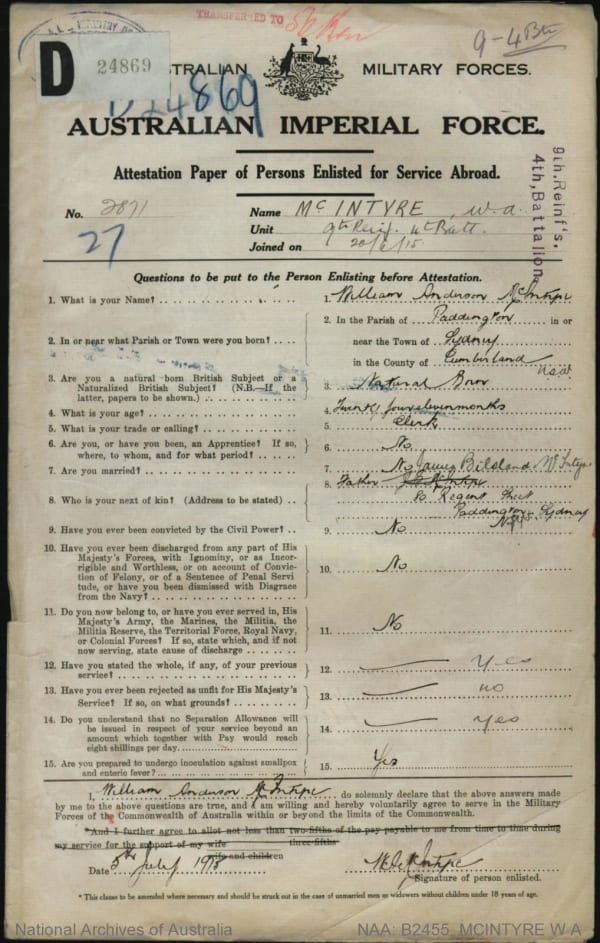 TRANSFERRED TO
9 - 4 Bn
D 24869
AUSTRALIAN MILITARY FORCES.
D24869
AUSTRALIAN IMPERIAL FORCE.
Attestation Paper of Persons Enlisted for Service Abroad.
9th. Reinf's.
4th, Battalion
No. 2871 Name McINTYRE, W.A.
27
Unit 9th Reinf. 4t Batt.
Joined on
Questions to be put to the Person Enlisting before Attestation.
1. What is your Name? 1. William Anderson McIntyre
2. In or near what Parish or Town were you born? 2. In the Parish of Paddington in or
near the Town of Sydney
in the County of Cumberland N.S.W.
3. Are you a natural born British Subject or a
Naturalized British Subject? (N.B.—If the
latter, papers to be shown.) 3. Natural Born
4. What is your age? 4. Twenty four eleven months
5. What is your trade or calling? 5. Clerk
6. Are you, or have you been, an Apprentice? If so,
where, to whom, and for what period? 6. No
7. Are you married? 7. No
8. Who is your next of kin? (Address to be stated) 8. Father James Bilsland McIntyre
Regent Street
Paddington Sydney
9. Have you ever been convicted by the Civil Power? 9. No
10. Have you ever been discharged from any part of His
Majesty's Forces, with Ignominy, or as Incor-
rigible and Worthless, or on account of Convic-
tion of Felony, or of a Sentence of Penal Servi-
tude, or have you been dismissed with Disgrace
from the Navy? 10. No
11. Do you now belong to, or have you ever served in, His
Majesty's Army, the Marines, the Militia, the
Militia Reserve, the Territorial Force, Royal Navy,
or Colonial Forces? If so, state which, and if not
now serving, state cause of discharge 11. No
12. Have you stated the whole, if any, of your previous
service? 12. Yes
13. Have you ever been rejected as unfit for His Majesty's
Service? If so, on what grounds? 13. no
14. Do you understand that no Separation Allowance will
be issued in respect of your service beyond an
amount which together with Pay would reach
eight shillings per day 14. Yes
15. Are you prepared to undergo inoculation against smallpox
and enteric fever? 15. Yes
I, William Anderson McIntyre do solemnly declare that the above answers made
by me to the above questions are true, and I am willing and hereby voluntarily agree to serve in the Military
Forces of the Commonwealth of Australia within or beyond the limits of the Commonwealth.
*And I further agree to allot not less than two-fifths of the pay payable to me from time to time during
three-fifths
my service for the support of my wife
wife and children
Date 5th July 1915 W A McIntyre
Signature of person enlisted.
* This clause to be amended where necessary and should be struck out in the case of unmarried men or widowers without children under 18 years of age.
National Archives of Australia NAA: B2455, MCINTYRE W A